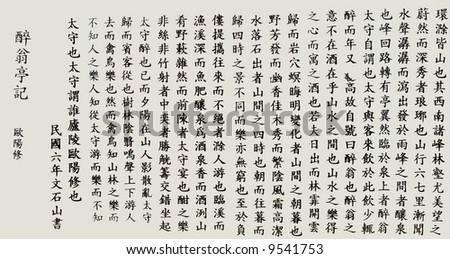 環滁皆山也其西南諸峰林壑尤美望之
蔚然而深秀者琅琊也山行六七里漸聞
水聲潺潺而瀉出於兩峰之間者釀泉
也峰回路轉有亭翼然臨於泉上者
太守自謂也太守與客來飲於此飲少輒
醉而年又高故自號曰醉翁也醉翁之
意不在酒在乎山水之間也山水之樂得
之心而寓之酒也若夫日出而林霏開雲
歸而岩穴暝晦明變化者山間之朝暮也
野芳發而幽香佳木秀而繁陰風霜高潔
水落石出者山間之四時也朝而往暮而
歸四時之景不同而樂亦無窮也至於負
僂提攜往來而不絕者滁人游也臨溪而
漁溪深而魚肥釀泉為酒泉香而酒洌山
肴野蔌雜然而前陳者太守宴也酣之樂
非絲非竹射者中奕者勝觥籌交錯坐起
太守醉也已而夕陽在山人影散亂太守
歸而賓客從也樹林陰翳鳴聲上下游人
去而禽鳥樂也然禽鳥知山林之樂而
不知人之樂人知從太守游而樂而不知
太守也太守謂誰廬陵歐陽修也
民國六年文石山書
醉翁亭記
歐陽修
shutterstock
www.shutterstock.com · 9541753